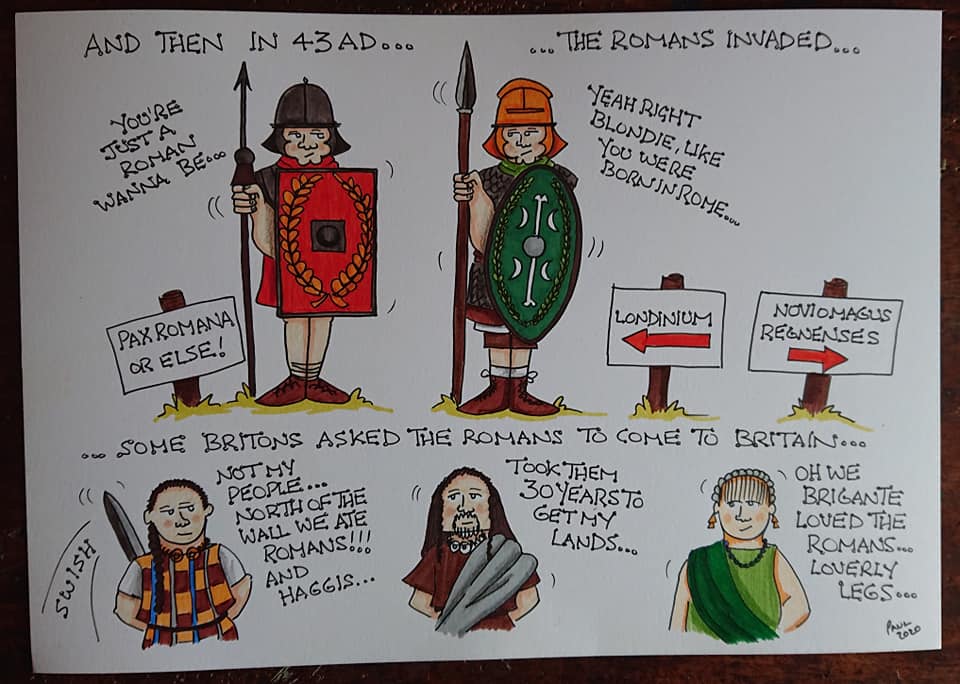 AND THEN IN 43 AD...
...THE ROMANS INVADED...
YOU'RE
JUST A
ROMAN
WANNA BE...
YEAH RIGHT
BLONDIE, LIKE
YOU WERE
BORN IN ROME...
PAX ROMANA
OR ELSE!
LONDINIUM
NOVIOMAGUS
REGNENSES
...SOME BRITONS ASKED THE ROMANS TO COME TO BRITAIN...
SWISH
NOT MY
PEOPLE...
NORTH OF THE
WALL WE ATE
ROMANS!!!
AND
HAGGIS...
TOOK THEM
30 YEARS TO
GET MY
LANDS...
OH WE
BRIGANTE
LOVED THE
ROMANS...
LOVERLY
LEGS...
PAUL
2020